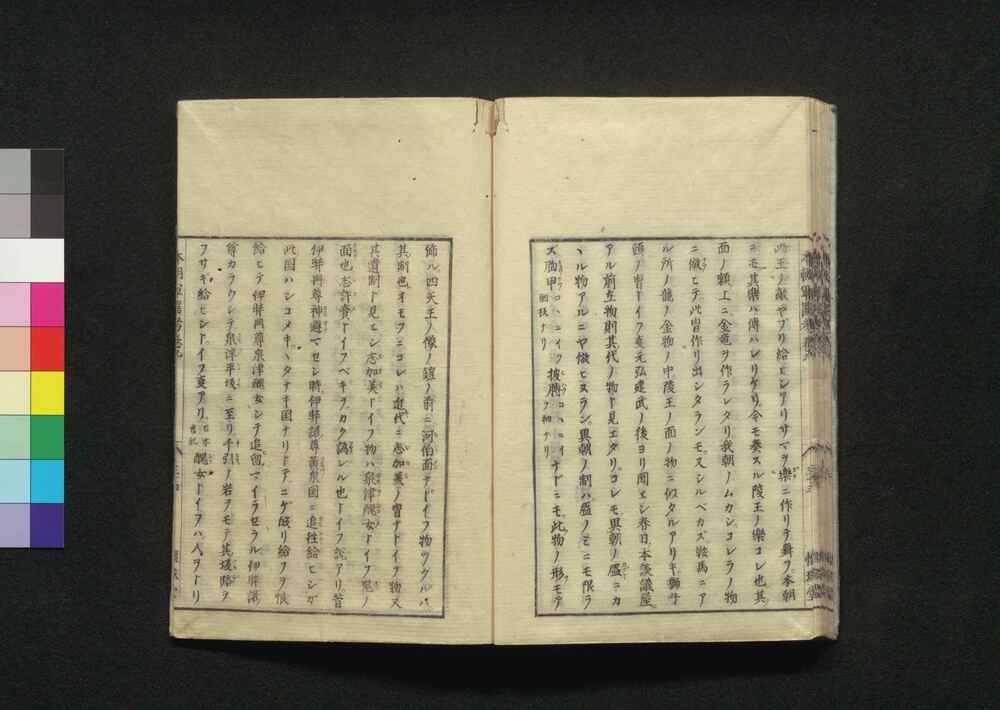 此王ノ敵ヤブリ給ヒシアリサマヲ樂ニ作リテ舞ヲ本朝
ニモ其樂ハ傳ハレリケリ今モ奏スル陵王ノ樂コレ也其
面ノ額上ニ金竜ヲ作ラレタリ我朝ノムカシコレラノ物
ニ倣ヒテ此冑作リ出シタランモ又シルベカラズ鞍馬ニア
ル所ノ龍ノ金物ノ中陵王ノ面ノ物ニ似タルアリキ獅子
頭ノ冑トイフ支元弘建武ノ後ヨリ聞エシ春日本談議屋
アル前立物則其代ノ物ト見エタリコレモ異朝ノ盔ニカ
ヽル物アルニヤ倣ヒヌラン異朝ノ制ハ盔ノミニモ限ラ
ズ胸甲コヽニイフ胴板ナリ披膊コヽニイフ袖ナリナドニモ此物ノ形モテ
飾ル四天王ノ像ノ鎧ノ前ニ河伯面ナドイフ物ツクルハ
其制也オモフニコレハ近代ニ志加美ノ冑ナドイフ物又
其遺制ト見ヒシ志加美トイフ物ハ泉津醜女トイフ鬼ノ
面也志許賣トイフベキヲカク譌レル也トイフ説アリ昔
伊弉冊尊神避マセシ時伊弉諾尊黄泉国ニ追往給ヒシガ
此国ハシコメキヽタナキ国ナリトアニゲ皈リ給フヲ恨
給ヒテ伊弉冊尊泉津醜女シテ追留マイラセラル伊弉諾
尊カラウシテ泉津平坂ニ至リ千引ノ岩ヲモテ其坂路ヲ
フサギ給ヒシトイフ支アリ日本古記醜女トイフハ人ヲトリ